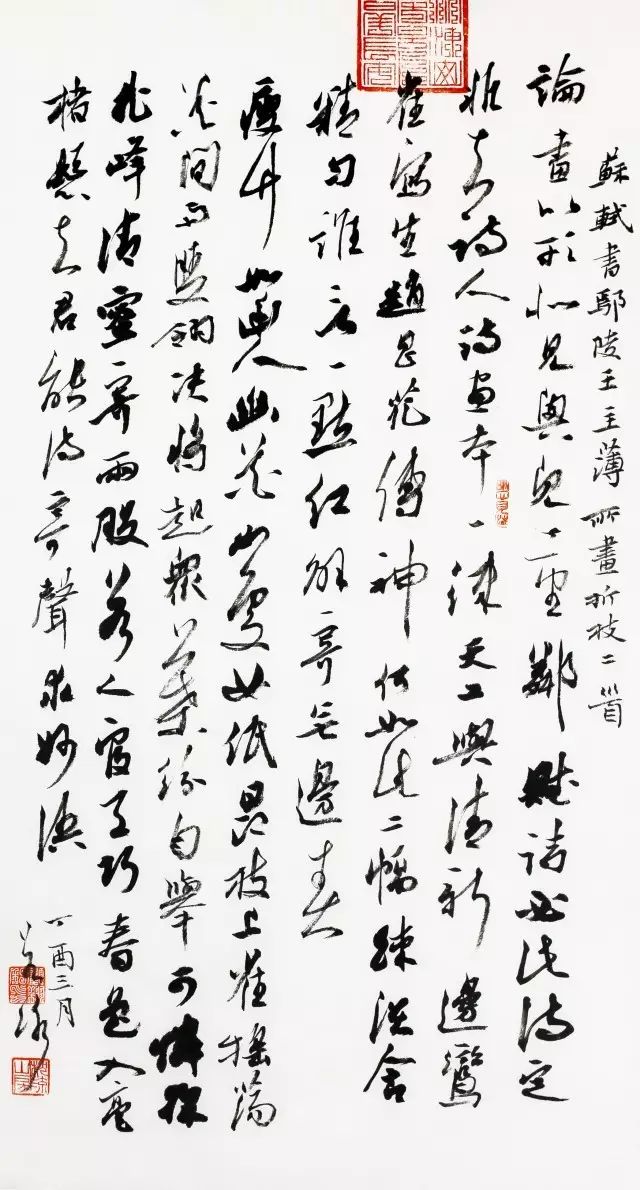 蘇軾書鄢陵王主薄所畫折枝二首
論畫以形似見與兒童鄰賦詩必此詩定
非知詩人詩畫本一律天工與清新邊鸞
雀寫生趙昌花傳神何如此二幅疎淡含
精勻誰言一點紅解寄無邊春
瘦竹如幽人幽花如處女低昂枝上雀搖蕩
花間雨雙翎決將起眾葉紛自舉可憐採
花蜂清蜜寄兩股若人富天巧春色入毫
楮懸知君能詩寄聲求妙語
丁酉三月